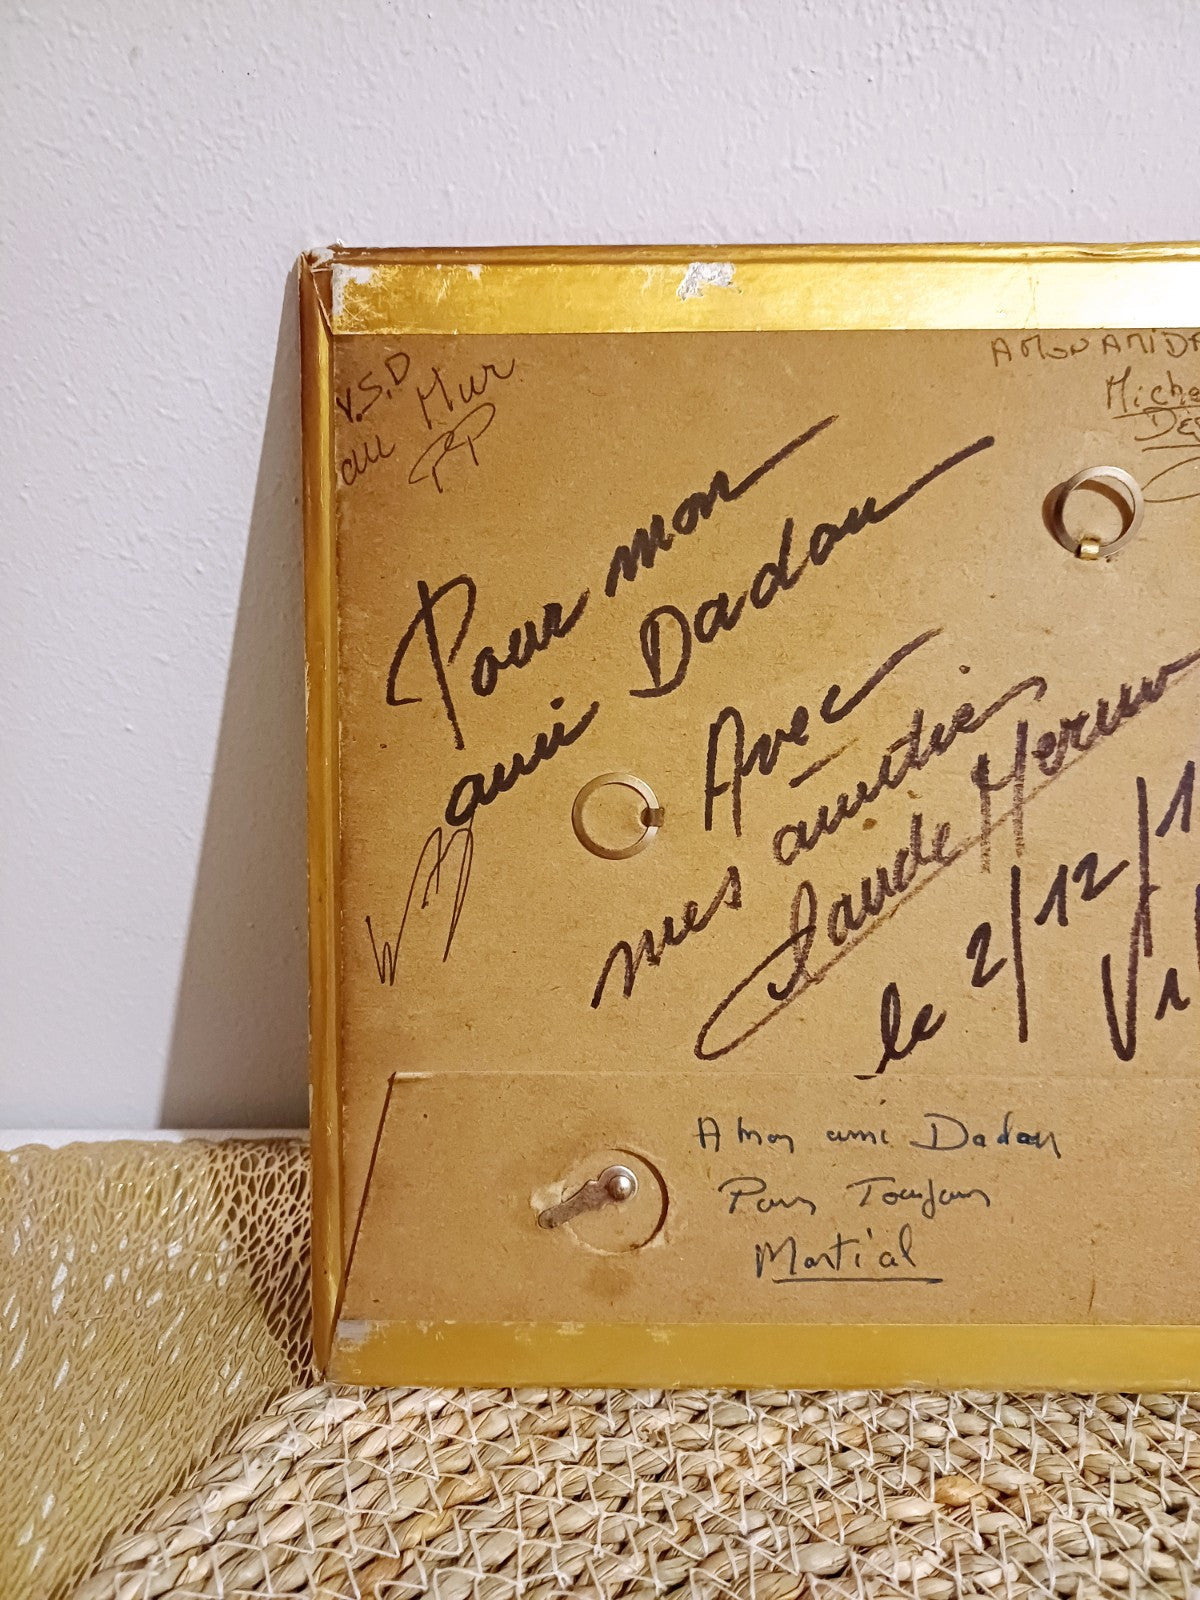 V.S.D
au Mur
PP
A MON AMI DA
Miche
Pour mon
ami Dadou
Avec
mes amitiés
Claude
le 2/12/1
A mon ami Dadou
Pour Toujours
Martial